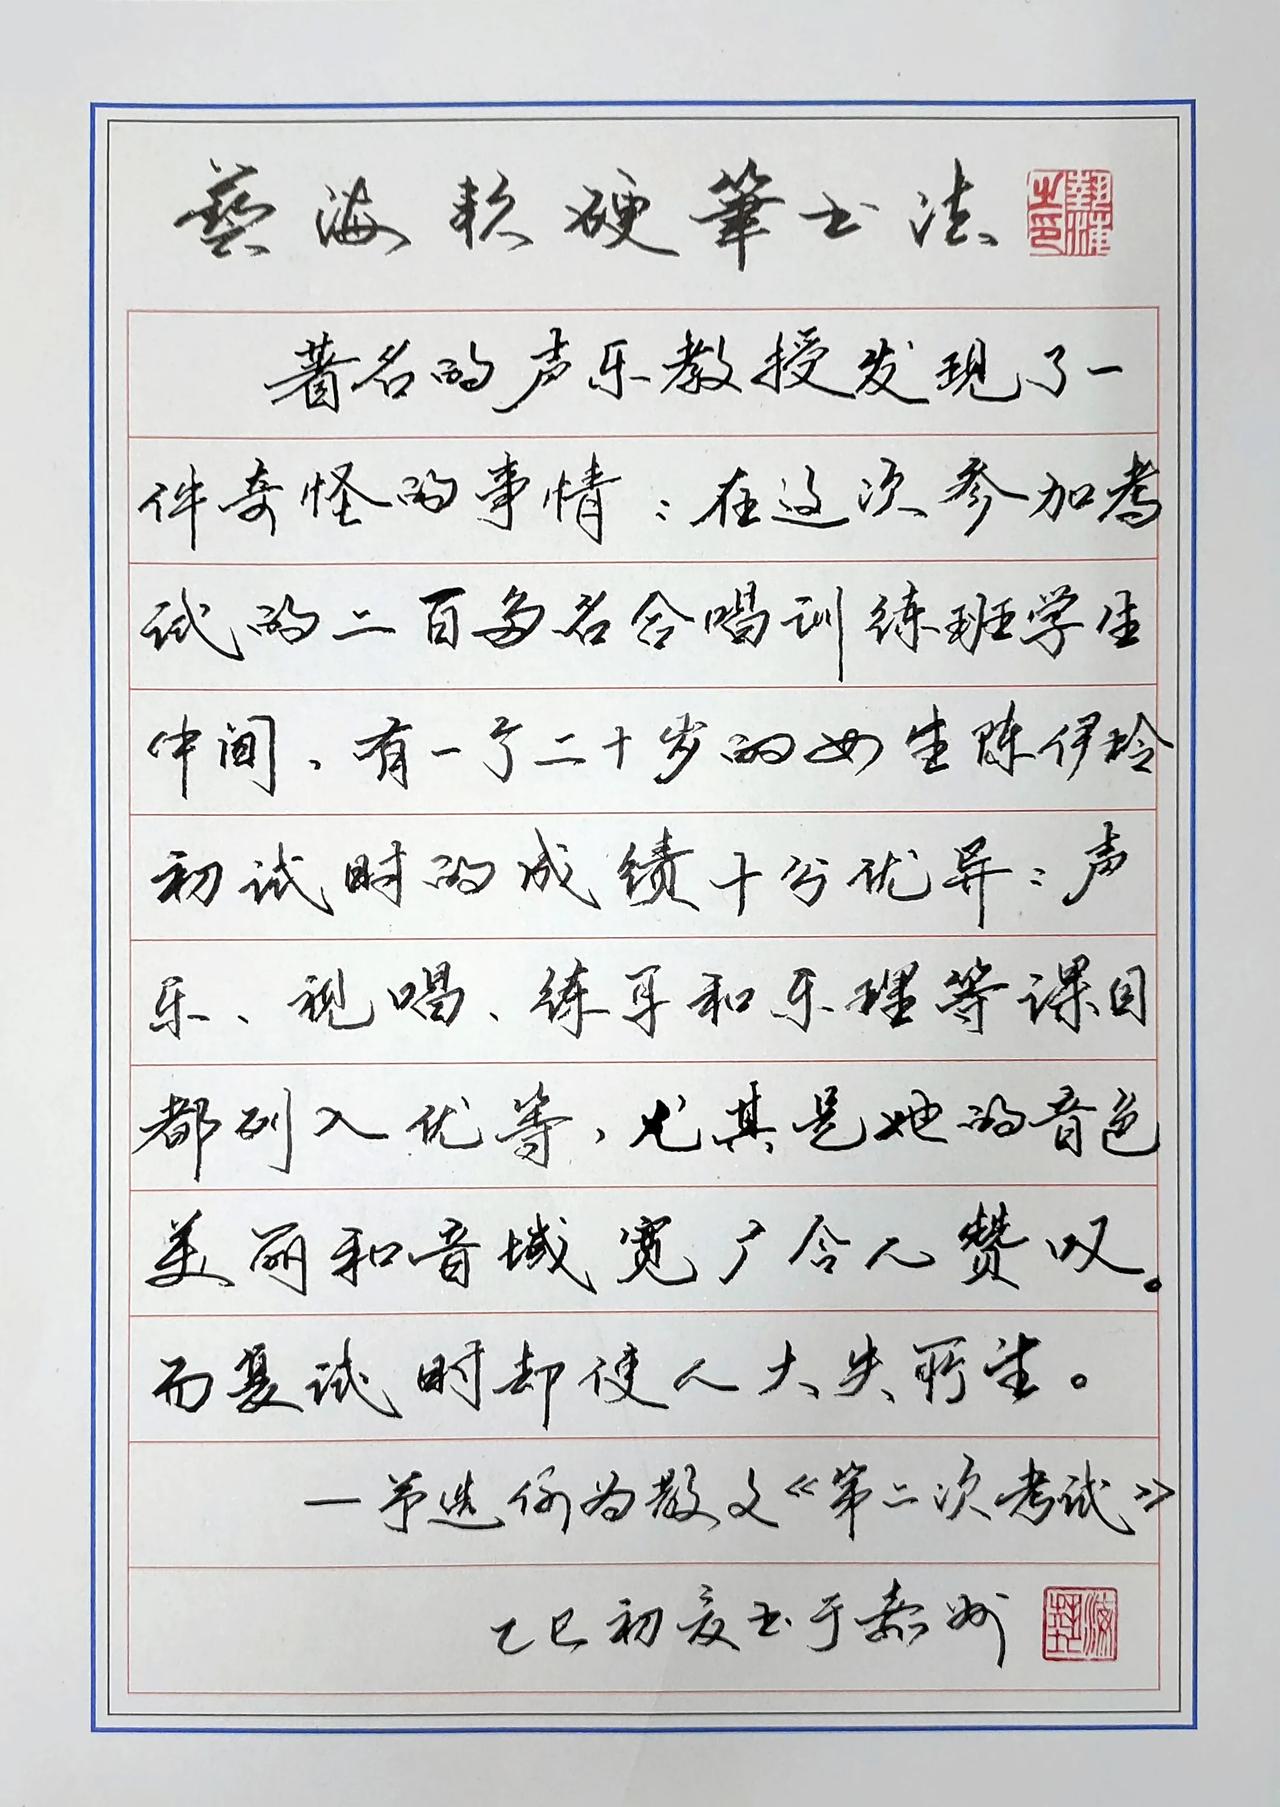 藝海软硬筆书法
著名的声乐教授发现了一
件奇怪的事情：在这次参加考
试的二百多名合唱训练班学生
中间，有一个二十岁的女生陈伊玲
初试时的成绩十分优异：声
乐、视唱、练耳和乐理等课目
都列入优等，尤其是她的音色
美丽和音域宽广令人赞叹。
而复试时却使人大失所望。
—节选何为散文《第二次考试》
乙巳初夏书于嘉州